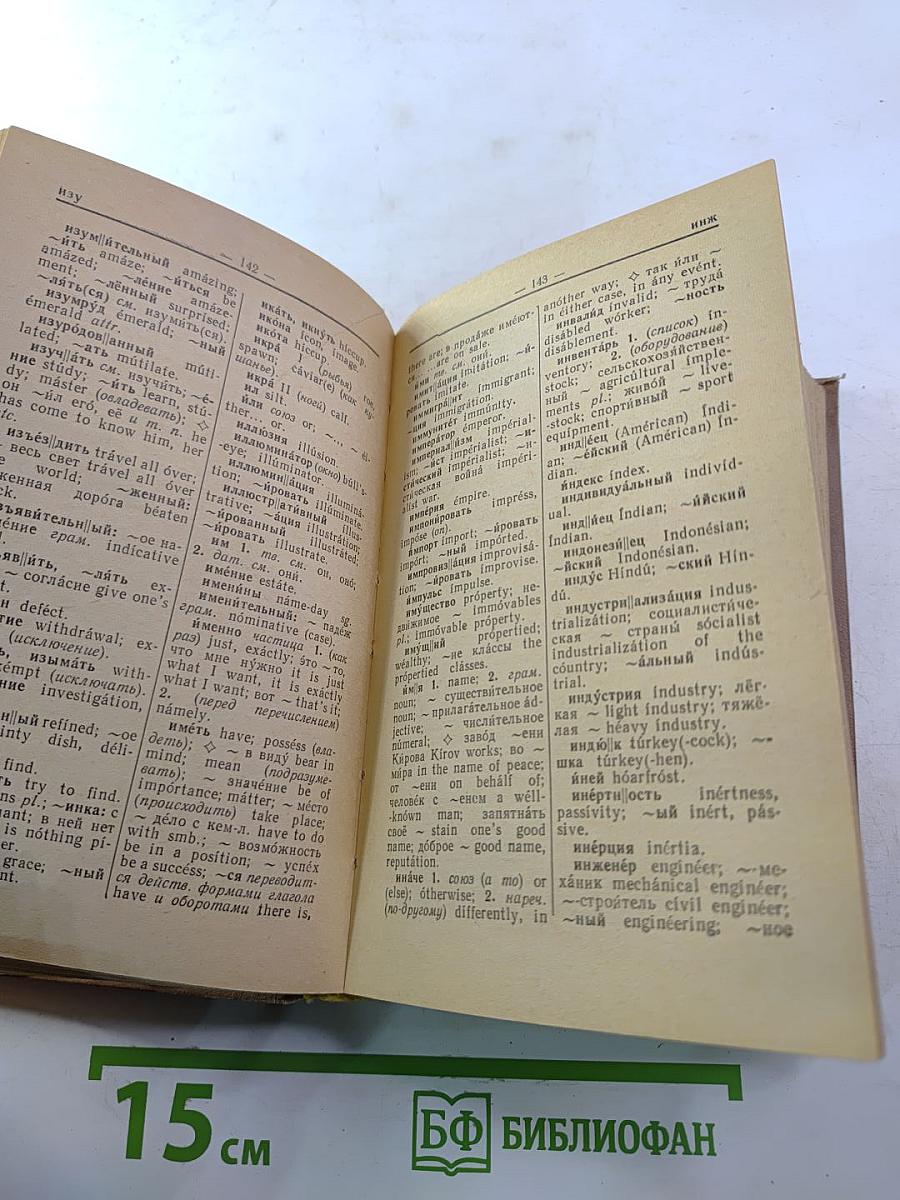 изу
— 142 —
изум||и́тельный amázing;
~и́ть amáze; ~и́ться be
amázed; ~ле́ние amáze-
ment; ~лённый surprísed;
~ля́ть(ся) см. изуми́ть(ся).
изумру́д émerald; ~ный
émerald attr.
изуро́дов||анный múti-
lated; ~ать mútilate.
изуч||а́ть см. изучи́ть; ~е́-
ние stúdy; ~и́ть learn, stú-
dy; máster (овладевать); ◇
он ~и́л его́, её и т. п. he
has come to know him, her
etc.
изъе́з||дить trável all óver;
весь свет trável all óver
world; ~женный:
женная доро́га béaten
ck.
зъяви́тельн||ый: ~ое на-
не́ние грам. indícative
яв||и́ть, ~ля́ть ex-
~ согла́сие give one's
t.
н deféct.
тие withdráwal; ex-
(исключение).
ь, изыма́ть with-
éмpt (исключать).
ние investigátion,
н||ый refíned; ~ое
inty dish, déli-
find.
ть try to find.
ns pl.; ~инка: с
nant; в ней нет
is nóthing pi-
er.
grace; ~ный
nt.
ика́ть, икну́ть híccup.
ико́на ícon, ímage.
ико́та híccup.
икра́ I (рыбья) roe,
spawn; cáviar(e) (как ку-
шанье).
икра́ II (ноги) calf.
ил silt.
и́ли союз or; ~... ~ éi-
ther... or.
иллю́зия illúsion.
иллюмина́тор (окно) búll's-
-eye; illúminator.
иллюмин||а́ция illuminá-
tion; ~и́ровать illúminate.
иллюстр||ати́вный íllus-
trative; ~а́ция illustrátion;
~и́рованный íllustrated;
~и́ровать íllustrate.
им 1. тв. см. он, оно́;
2. дат. см. они́.
име́ние estáte.
имени́ны náme-day sg.
имени́тельный: ~ паде́ж
грам. nóminative (case).
и́менно частица 1. (как
раз) just, exáctly; э́то ~ то,
что мне ну́жно it is just
what I want, it is exáctly
what I want; вот ~ that's it;
2. (перед перечислением)
námely.
име́ть have; posséss (вла-
деть); ◇ ~ в виду́ bear in
mind; mean (подразуме-
вать); ~ значе́ние be of
impórtance; mátter; ~ ме́сто
(происходить) take place;
~ де́ло с кем-л. have to do
with smb.; ~ возмо́жность
be in a posítion; ~ успе́х
be a succéss; ~ся переводит-
ся действ. формами глагола
have и оборотами there is,
инж
— 143 —
there are; в прода́же име́ют-
ся... ...are on sale.
и́ми тв. см. они́.
имит||а́ция imitátion; ~и́-
ровать ímitate.
иммигр||а́нт ímmigrant;
~а́ция immigrátion.
иммуните́т immúnity.
импера́тор émperor.
империал||и́зм impérial-
ism; ~и́ст impérialist; ~и-
сти́ческий impérialist; ~и-
сти́ческая война́ impéri-
alist war.
импе́рия émpire.
импони́ровать impréss,
impóse (on).
и́мпорт ímport; ~и́ровать
impórt; ~ный impórted.
импровиз||а́ция improvisá-
tion; ~и́ровать ímprovise.
и́мпульс ímpulse.
иму́щество próperty; не-
дви́жимое ~ immóvables
pl.; immóvable próperty.
иму́щ||ий própertied;
wéalthy; ~ие кла́ссы the
própertied clásses.
и́м||я 1. name; 2. грам.
noun; ~ существи́тельное
noun; ~ прилага́тельное ád-
jective; ~ числи́тельное
númeral; ◇ заво́д ~ени
Ки́рова Kírov works; во ~
ми́ра in the name of peace;
от ~ени on behálf of;
челове́к с ~енем a wéll-
-knówn man; запятна́ть
своё ~ stain one's good
name; до́брое ~ good name,
reputátion.
ина́че 1. союз (а то) or
(else); ótherwise; 2. нареч.
(по-другому) dífferently, in
anóther way; ◇ так и́ли ~
in éither case, in ány evént.
инвали́д ínvalid; ~ труда́
disábled wórker; ~ность
disáblement.
инвента́рь 1. (список) ín-
ventory; 2. (оборудование)
stock; сельскохозя́йствен-
ный ~ agricúltural ímple-
ments pl.; живо́й ~ líve-
-stock; спорти́вный ~ sport
equípment.
инд||е́ец (Américan) Índi-
an; ~е́йский (Américan) Ín-
dian.
и́ндекс índex.
индивидуа́льный indivíd-
ual.
инд||и́ец Índian; ~и́йский
Índian.
индонези́||ец Indonésian;
~йский Indonésian.
инду́с Híndú; ~ский Hín-
dú.
индустри||ализа́ция indus-
trializátion; социалисти́че-
ская ~ страны́ sócialist
industrializátion of the
cóuntry; ~а́льный indús-
trial.
инду́стрия índustry; лёг-
кая ~ light índustry; тяжё-
лая ~ héavy índustry.
индю́||к túrkey(-cock); ~-
шка túrkey(-hen).
и́ней hóarfróst.
ине́ртн||ость inértness,
passívity; ~ый inért, pás-
sive.
ине́рция inértia.
инжене́р enginéer; ~-ме-
ха́ник mechánical enginéer;
~-строи́тель cívil enginéer;
~ный enginéering; ~ное
15 см
БФ БИБЛИОФАН